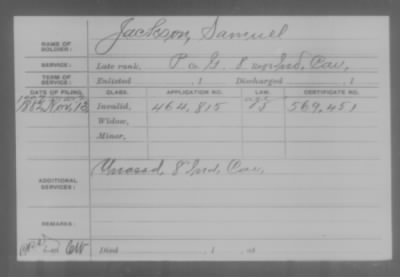 NAME OF SOLDIER: Jackson, Samuel
SERVICE: Late rank, P Co. G, 8 Reg't Ind. Cav.
TERM OF SERVICE: Enlisted , 1 Discharged , 1
DATE OF FILING. CLASS. APPLICATION NO. LAW. CERTIFICATE NO.
Nov. 13 Invalid, 464,815 569,451
Widow,
Minor,
ADDITIONAL SERVICES: Unassd. 8" Ind. Cav.
REMARKS:
Died , 1 , at